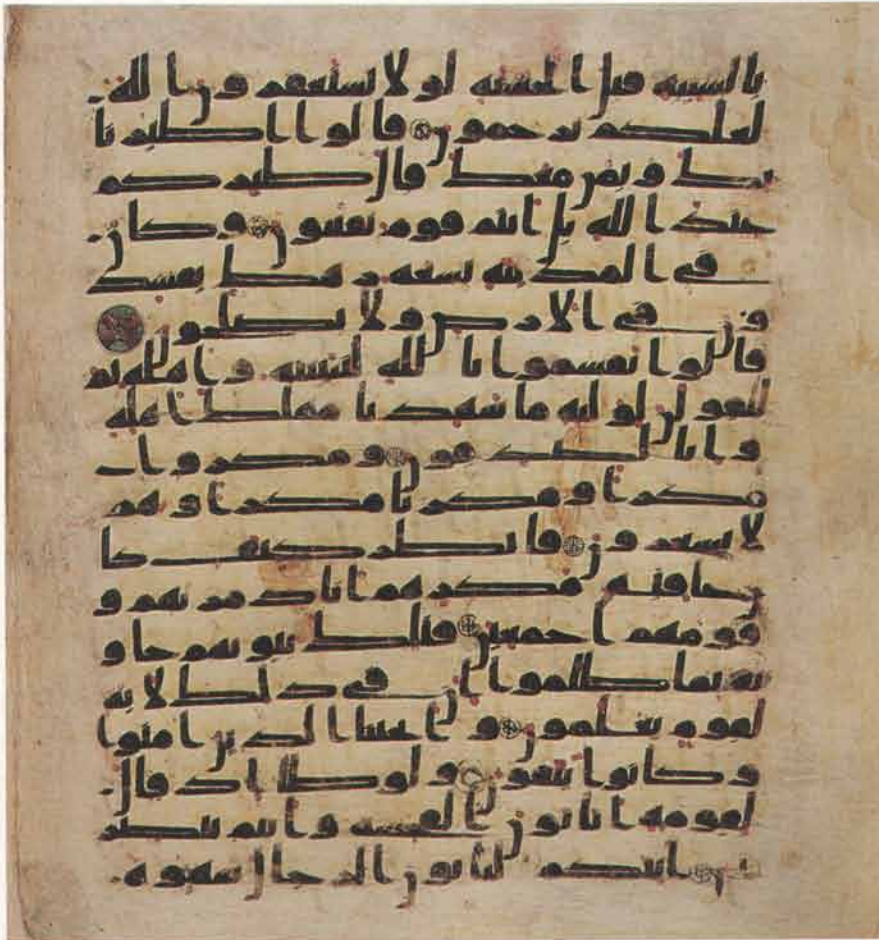 بالسيئة قبل الحسنة لولا تستغفرون الله
لعلكم ترحمون قالوا اطيرنا
بك وبمن معك قال طئركم
عند الله بل انتم قوم تفتنون وكان
في المدينة تسعة رهط يفسد
ون في الارض ولا يصلحون
قالوا تقسموا بالله لنبيتنه واهله ثم
لنقولن لوليه ما شهدنا مهلك اهله
وانا لصدقون ومكروا
مكرا ومكرنا مكرا وهم
لا يشعرون فانظر كيف كا
ن عقبة مكرهم انا دمرنهم و
قومهم اجمعين فتلك بيوتهم خاو
ية بما ظلموا ان في ذلك لاية
لقوم يعلمون وانجينا الذين امنوا
وكانوا يتقون ولوطا اذ قال
لقومه اتاتون الفحشة وانتم تبصر
ون اينكم لتاتون الرجال شهوة